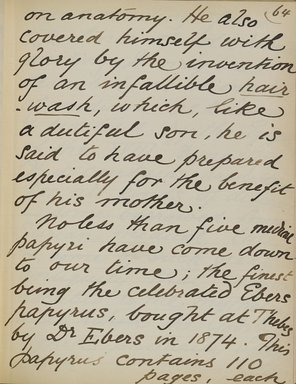 64
on anatomy. He also
covered himself with
glory by the invention
of an infallible hair
-wash, which, like
a dutiful son, he is
said to have prepared
especially for the benefit
of his mother.
No less than five medical
papyri have come down
to our time; the finest
being the celebrated Ebers
papyrus, bought at Thebes
by Dr Ebers in 1874. This
papyrus contains 110
pages, each